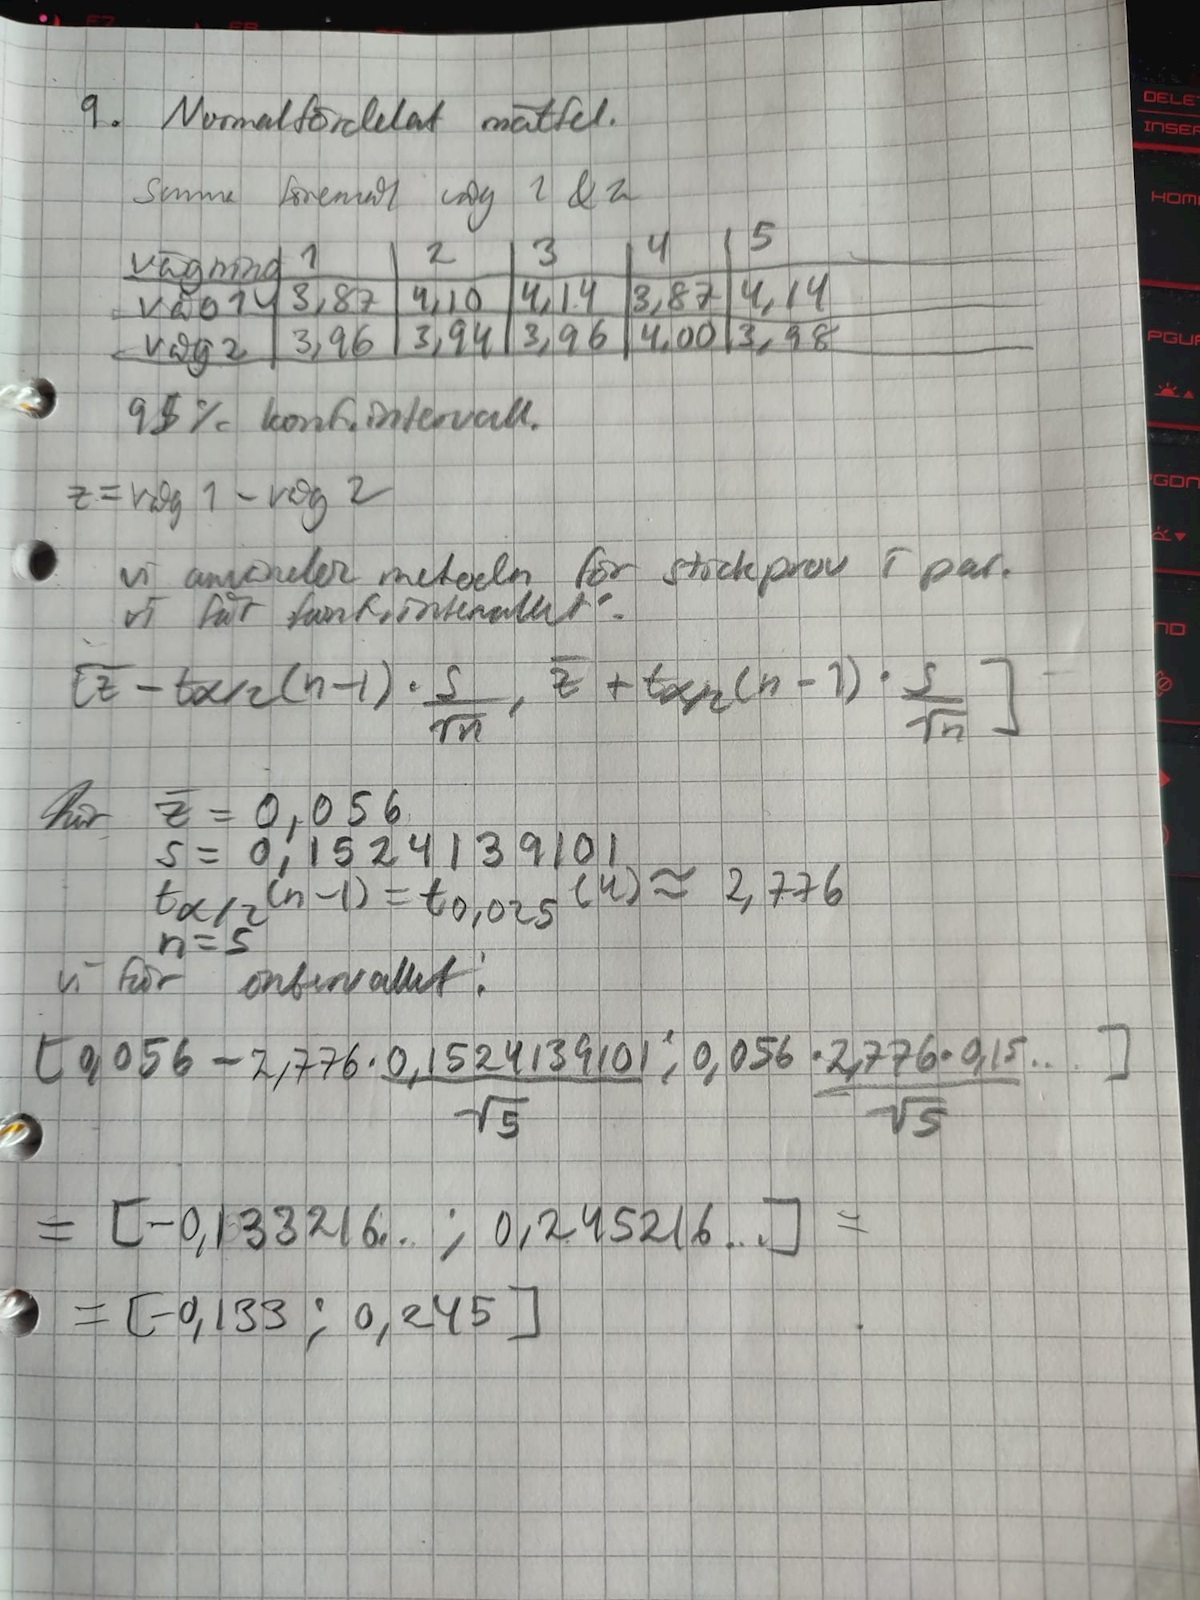 9. Normalfördelat mätfel.
Samma föremål våg 1 & 2
vägning 1 2 3 4 5
våg 1 3,87 4,10 4,14 3,87 4,14
våg 2 3,96 3,94 3,96 4,00 3,98
95% konf.intervall.
z = våg 1 - våg 2
vi använder metoden för stickprov i par.
vi får konf.intervallet:
[z̄ - tα/2(n-1) · s/√n, z̄ + tα/2(n-1) · s/√n]
för z̄ = 0,056
s = 0,1524139101
tα/2(n-1) = t0,025(4) ≈ 2,776
n = 5
vi får intervallet:
[0,056 - 2,776 · 0,1524139101/√5 ; 0,056 · 2,776 · 0,15.../√5]
= [-0,133216... ; 0,245216...] =
= [-0,133 ; 0,245]
DELE
INSER
HOM
PGUP
PGDN
ND